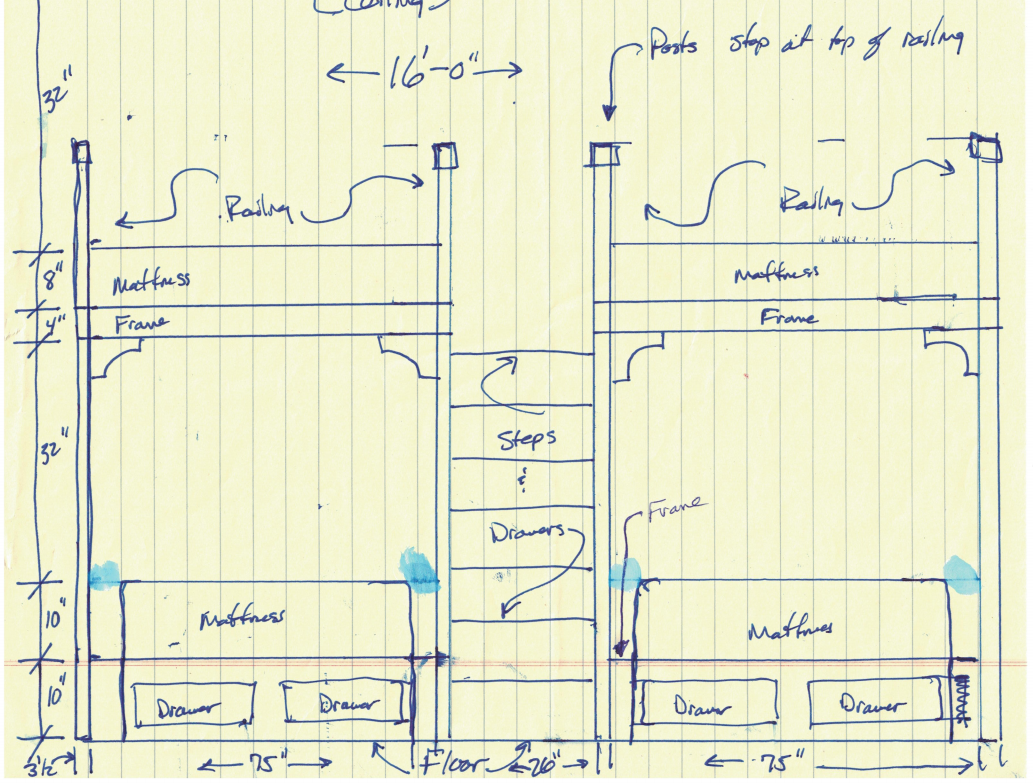 16'-0"
Posts stop at top of railing
32"
Railing
Railing
8"
Mattress
Mattress
4"
Frame
Frame
32"
Steps
&
Drawers
Frame
10"
Mattress
Mattress
10"
Drawer
Drawer
Drawer
Drawer
3½"
75"
Floor
26"
75"